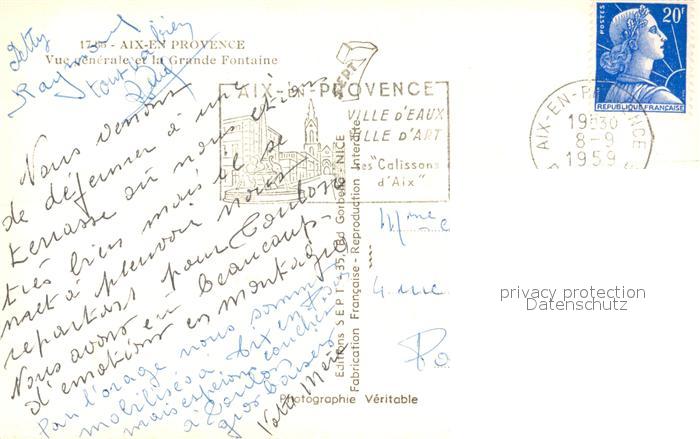 17-85 - AIX-EN PROVENCE
Vue générale et la Grande Fontaine
Raymond
Tout va bien
Nous venons
de déjeuner à une
terrasse où nous étions
très bien mais il se
met à pleuvoir nous
repartons pour Toulon
Nous avons eu beaucoup
d'emotions en montagne
Par l'orage nous sommes
mobilisés à Aix en
mais espérons coucher
à Toulon
gros baisers
Votre Mère
AIX-EN-PROVENCE
VILLE D'EAUX
VILLE D'ART
ses "Calissons
d'Aix"
SEPT
Editions SEPT - 35, Bd Gorbella - NICE
Fabrication Française - Reproduction Interdite
Photographie Véritable
POSTES
20F
REPUBLIQUE FRANÇAISE
AIX-EN-PROVENCE
19H30
8-9
1959
Mme
4 rue
privacy protection
Datenschutz